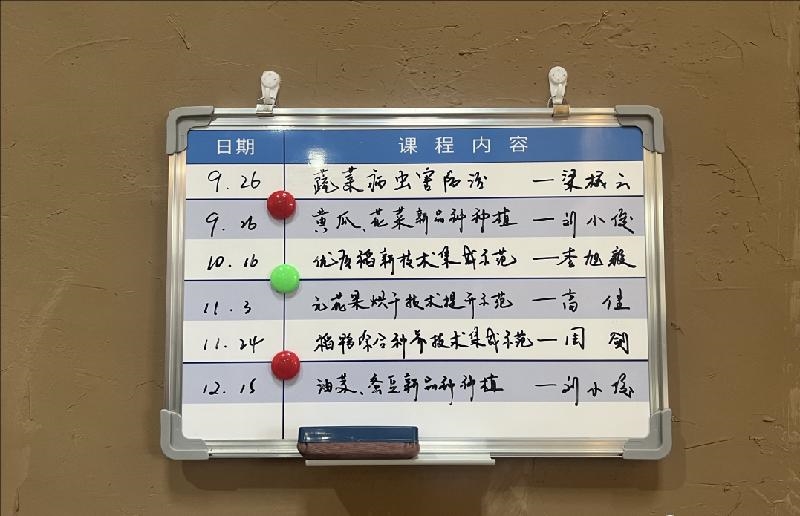 日期 课程内容
9.26 蔬菜病虫害防治 —梁根云
9.26 黄瓜、花菜新品种种植 —刘小俊
10.16 优质稻新技术集成示范 —李旭毅
11.3 无花果烘干技术提升示范 —高佳
11.24 稻 综合种养技术集成示范—周剑
12.15 油菜、蚕豆新品种种植 —刘小俊